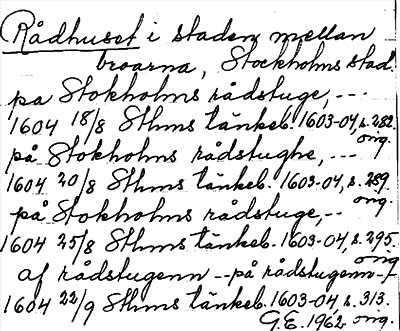 Rådhuset i staden mellan
broarna, Stockholms stad.
pa Stokholms rådstuge, ---
1604 18/8 Sthms tänkeb. 1603-04, s. 282.
orig.
på Stokholms rådstughe, ---
1604 20/8 Sthms tänkeb. 1603-04, s. 289.
orig.
på Stokholms rådstuge, --
1604 25/8 Sthms tänkeb. 1603-04, s. 295.
orig
af rådstugenn -- på rådstugenn -
1604 22/9 Sthms tänkeb. 1603-04 s. 313.
G.E. 1962 orig.